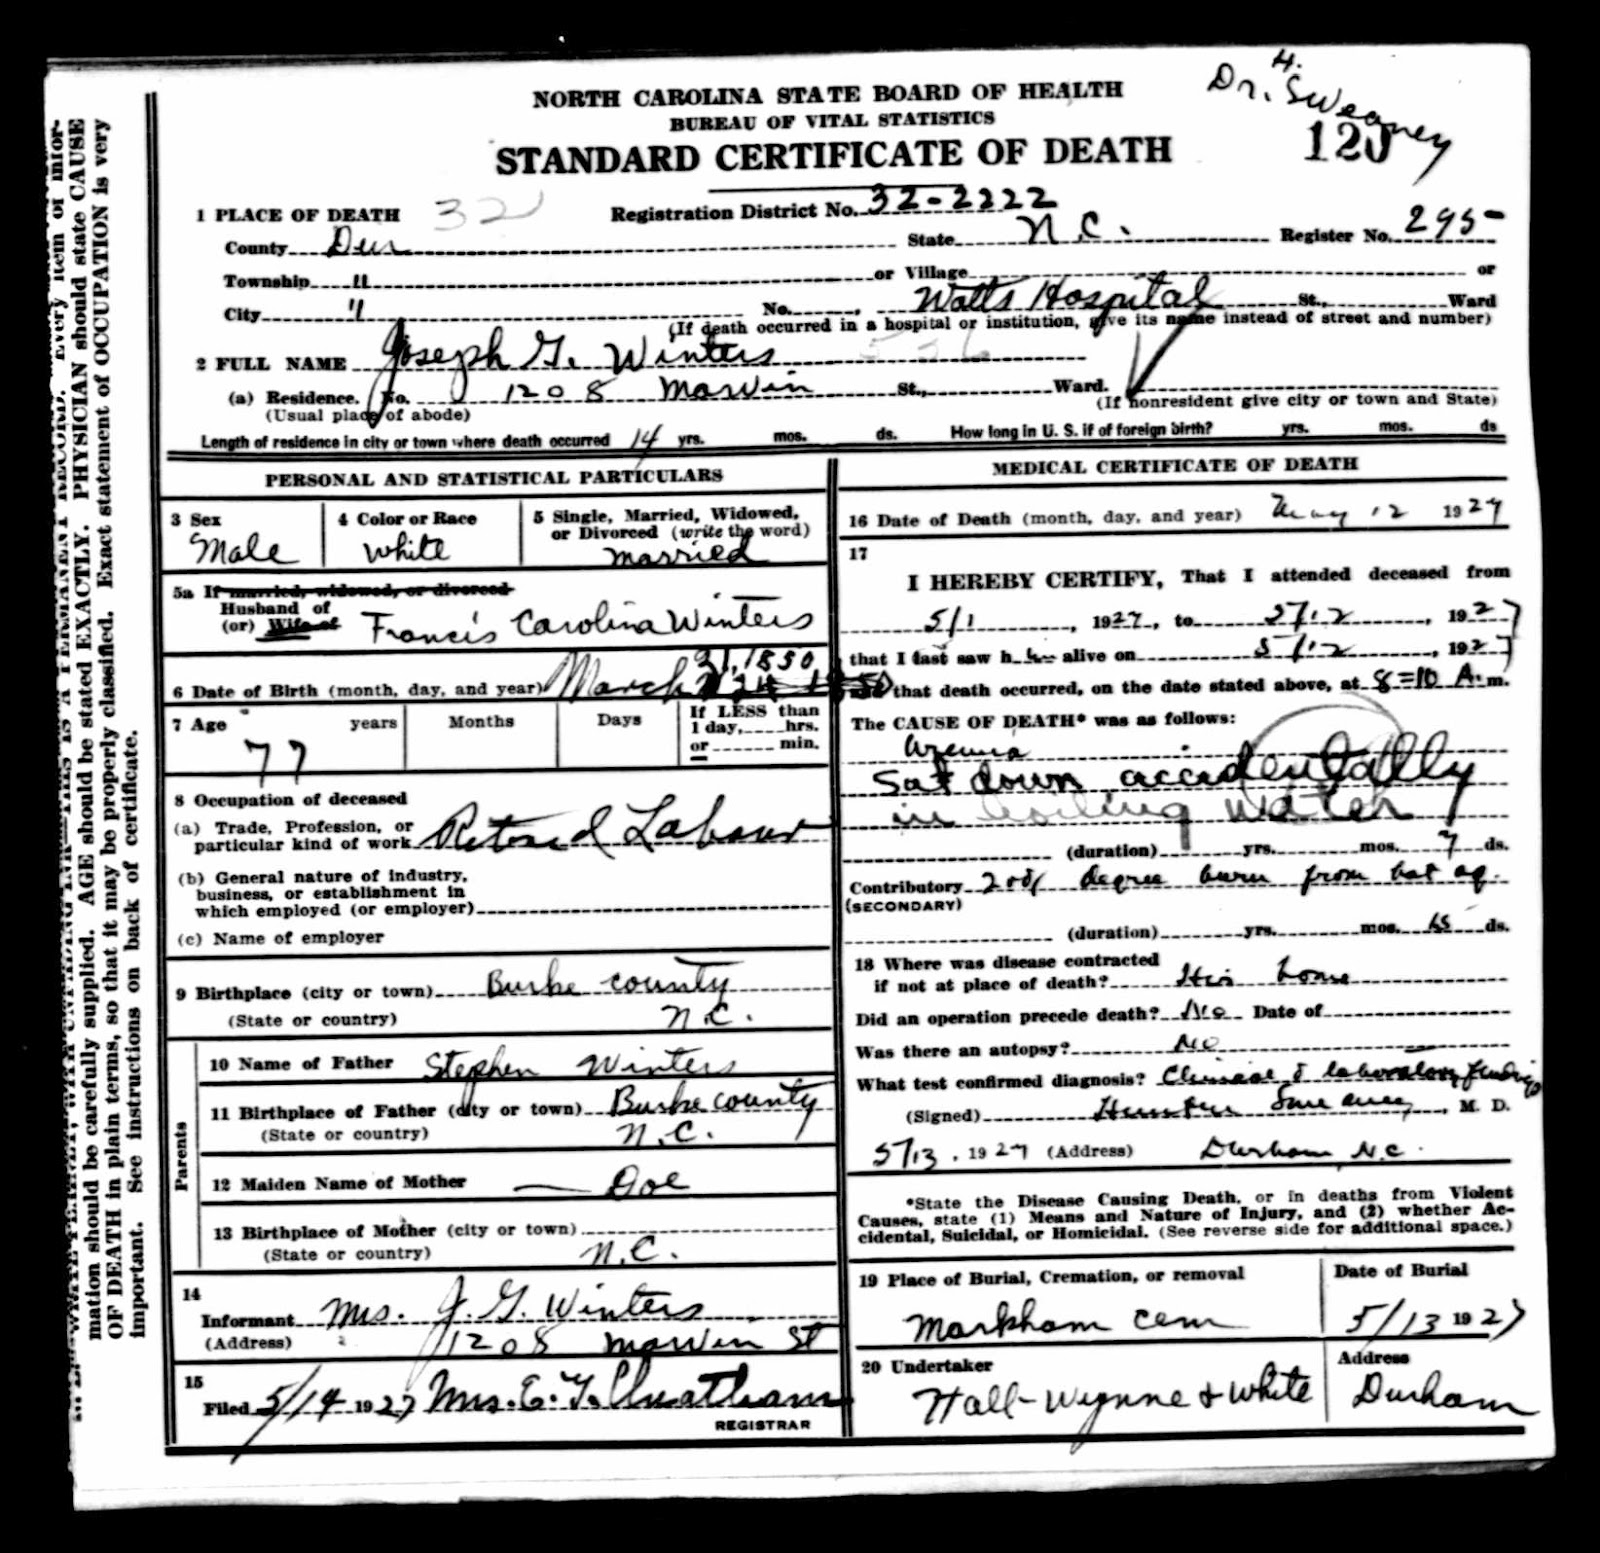 Dr. H. Sweaney
NORTH CAROLINA STATE BOARD OF HEALTH
BUREAU OF VITAL STATISTICS
STANDARD CERTIFICATE OF DEATH
120
1 PLACE OF DEATH 32 Registration District No. 32-2222
County Dur State N.C. Register No. 295
Township " or Village or
City " No. , Watts Hospital St., Ward
(If death occurred in a hospital or institution, give its name instead of street and number)
2 FULL NAME Joseph G. Winters
(a) Residence. No. 1208 Marvin St., Ward.
(Usual place of abode) (If nonresident give city or town and State)
Length of residence in city or town where death occurred 14 yrs. mos. ds. How long in U. S. if of foreign birth? yrs. mos. ds
PERSONAL AND STATISTICAL PARTICULARS
3 Sex 4 Color or Race 5 Single, Married, Widowed, or Divorced (write the word)
Male White Married
5a If married, widowed, or divorced
Husband of
(or) Wife of Francis Carolina Winters
6 Date of Birth (month, day, and year) March 31, 1850
7 Age years Months Days If LESS than
1 day, hrs.
or min.
77
8 Occupation of deceased
(a) Trade, Profession, or
particular kind of work Retired Labour
(b) General nature of industry,
business, or establishment in
which employed (or employer)
(c) Name of employer
9 Birthplace (city or town) Burke county
(State or country) N.C.
Parents
10 Name of Father Stephen Winters
11 Birthplace of Father (city or town) Burke county
(State or country) N.C.
12 Maiden Name of Mother — Doe
13 Birthplace of Mother (city or town)
(State or country) N.C.
14
Informant Mrs. J. G. Winters
(Address) 1208 Marvin St
15
Filed 5/14 1927 Mrs. E. T. Cheatham
REGISTRAR
MEDICAL CERTIFICATE OF DEATH
16 Date of Death (month, day, and year) May 12 1927
17
I HEREBY CERTIFY, That I attended deceased from
5/1, 1927, to 5/12, 1927
that I last saw h im alive on 5/12, 1927
and that death occurred, on the date stated above, at 8=10 A. m.
The CAUSE OF DEATH* was as follows:
Uremia
Sat down accidentally
in boiling water
(duration) yrs. mos. 7 ds.
Contributory 2nd degree burn from hot aq.
(SECONDARY)
(duration) yrs. mos. ds.
18 Where was disease contracted
if not at place of death? His home
Did an operation precede death? No Date of
Was there an autopsy? No
What test confirmed diagnosis? Clinical & laboratory findings
(Signed) Hunter Sweaney, M. D.
5/13, 1927 (Address) Durham, N.C.
*State the Disease Causing Death, or in deaths from Violent
Causes, state (1) Means and Nature of Injury, and (2) whether Ac-
cidental, Suicidal, or Homicidal. (See reverse side for additional space.)
19 Place of Burial, Cremation, or removal Date of Burial
Markham Cem 5/13 1927
20 Undertaker Address
Hall-Wynne & White Durham
mation should be carefully supplied. AGE should be stated EXACTLY. PHYSICIAN should state CAUSE
OF DEATH in plain terms, so that it may be properly classified. Exact statement of OCCUPATION is very
important. See instructions on back of certificate.